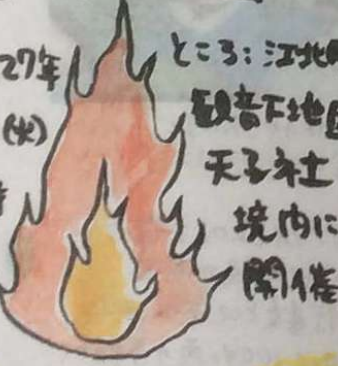 27年
(火)
ところ:江北町
観音下地区
天子社
境内に
開催